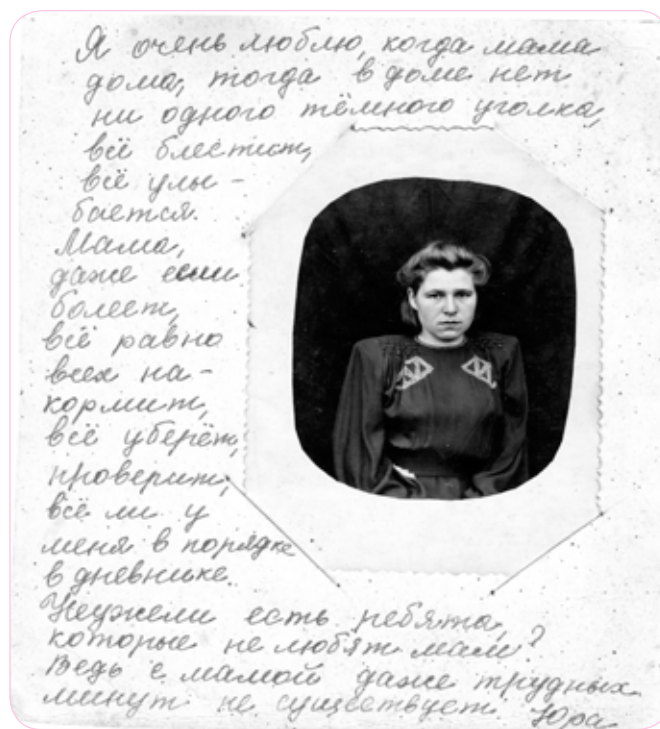 Я очень люблю, когда мама
дома, тогда в доме нет
ни одного тёмного уголка,
всё блестит,
всё улы-
бается.
Мама,
даже если
болеет,
всё равно
всех на-
кормит,
всё уберёт,
проверит,
всё ли у
меня в порядке
в дневнике.
Неужели есть ребята,
которые не любят мам?
Ведь с мамой даже трудных
минут не существует. Юра